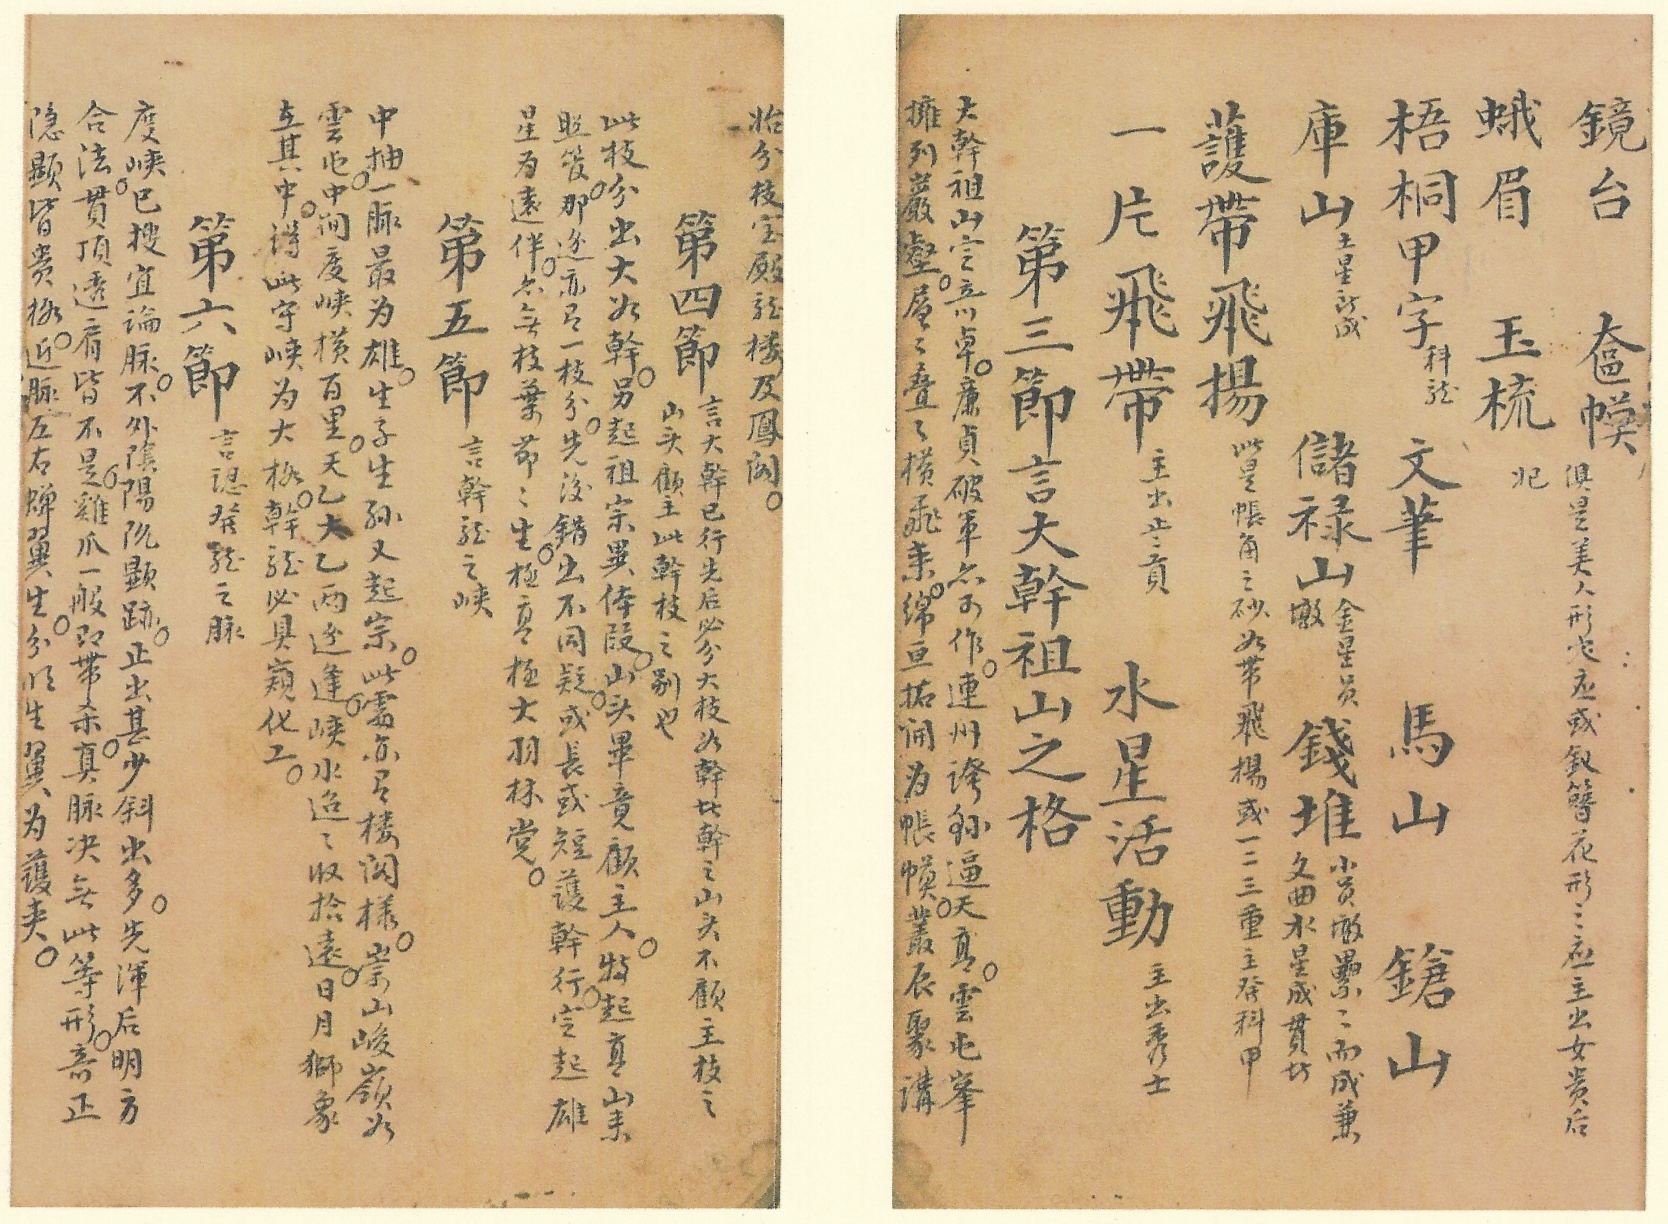 鏡台　奩幙俱是美人形也应或釵簪花形之应主出女贵后
蛾眉　玉梳妃
梧桐甲字科甲　文筆　馬山　鎗山
庫山土星成　儲禄山金星員墩　錢堆小員墩壘之而成兼文曲水星成貫坊
護帶飛揚此是帳角之砂如带飛揚或一二三重主發科甲
一片飛帶主出貢　水星活動主出秀士
第三節言大幹祖山之格
大幹祖山定立卓。廉貞破軍亦可作。連州誇縣逼天高。雲屯峯
擁列巖壑。層々叠々橫飛來。綿亘拓開为帳幙。叢辰聚講
始分枝。宝殿龍楼及鳳阁。
第四節言大幹已行先后必分大枝如幹此幹之山头不顧主枝之
山头顧主此幹枝之别也
此枝分出大如幹。另起祖宗異体段。山头畢竟顧主人。特起高山来
照後。那边亦有一枝分。先後錯出不同疑。或長或短護幹行。定起雄
星为遠伴。亦有枝葉節々生。極高極大羽林党。
第五節言幹龍之峡
中抽一脉最为雄。生子生孫又起宗。此處亦有楼阁樣。崇山峻嶺如
雲屯。中间度峡横百里。天乙太乙两边逢。峡水迢々收拾遠。日月獅象
在其中。得此守峡为大格。幹龍必具窺化工。
第六節言認發龍之脉
度峡已搜宜論脉。不外陰陽阮顯跡。正出甚少斜出多。先渾后明方
合法。貫頂透肩皆不是。雞爪一般即带杀。真脉决無此等形。斋正
隐顯皆贵格。近脉左右蟬翼生。分明生翼为護夹。